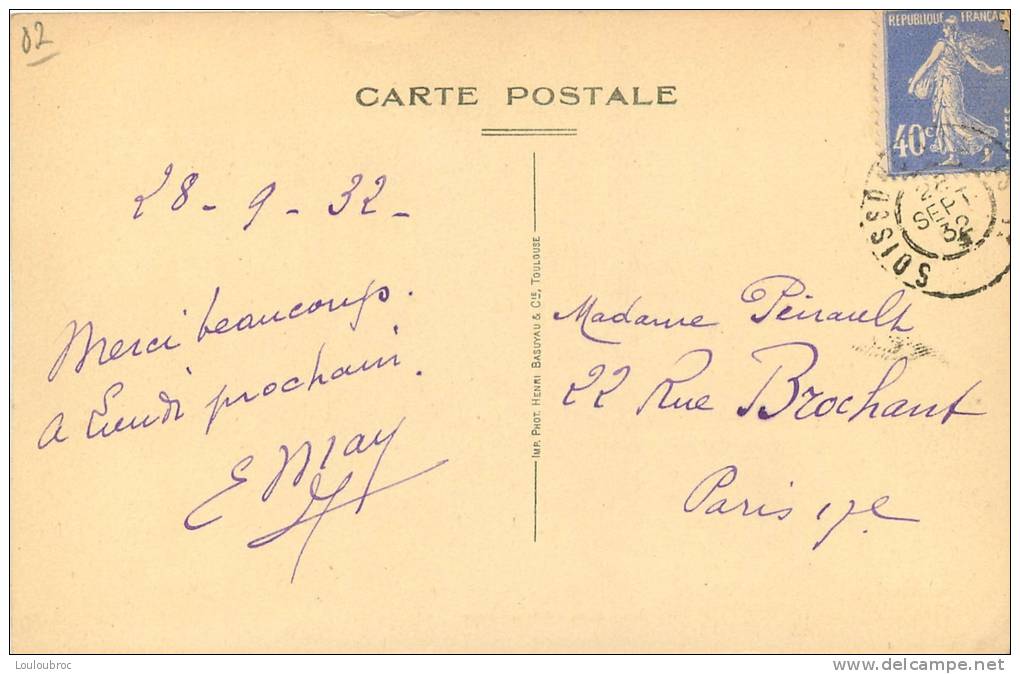 02
CARTE POSTALE
RÉPUBLIQUE FRANÇAI
40c
SOISSO
SEPT
32
28 - 9 - 32 -
Merci beaucoup.
a Lundi prochain.
E May
IMP. PHOT. HENRI BASUYAU & CIE, TOULOUSE
Madame Peirault
22 Rue Brochant
Paris 17e
Louloubroc
www.delcampe.net